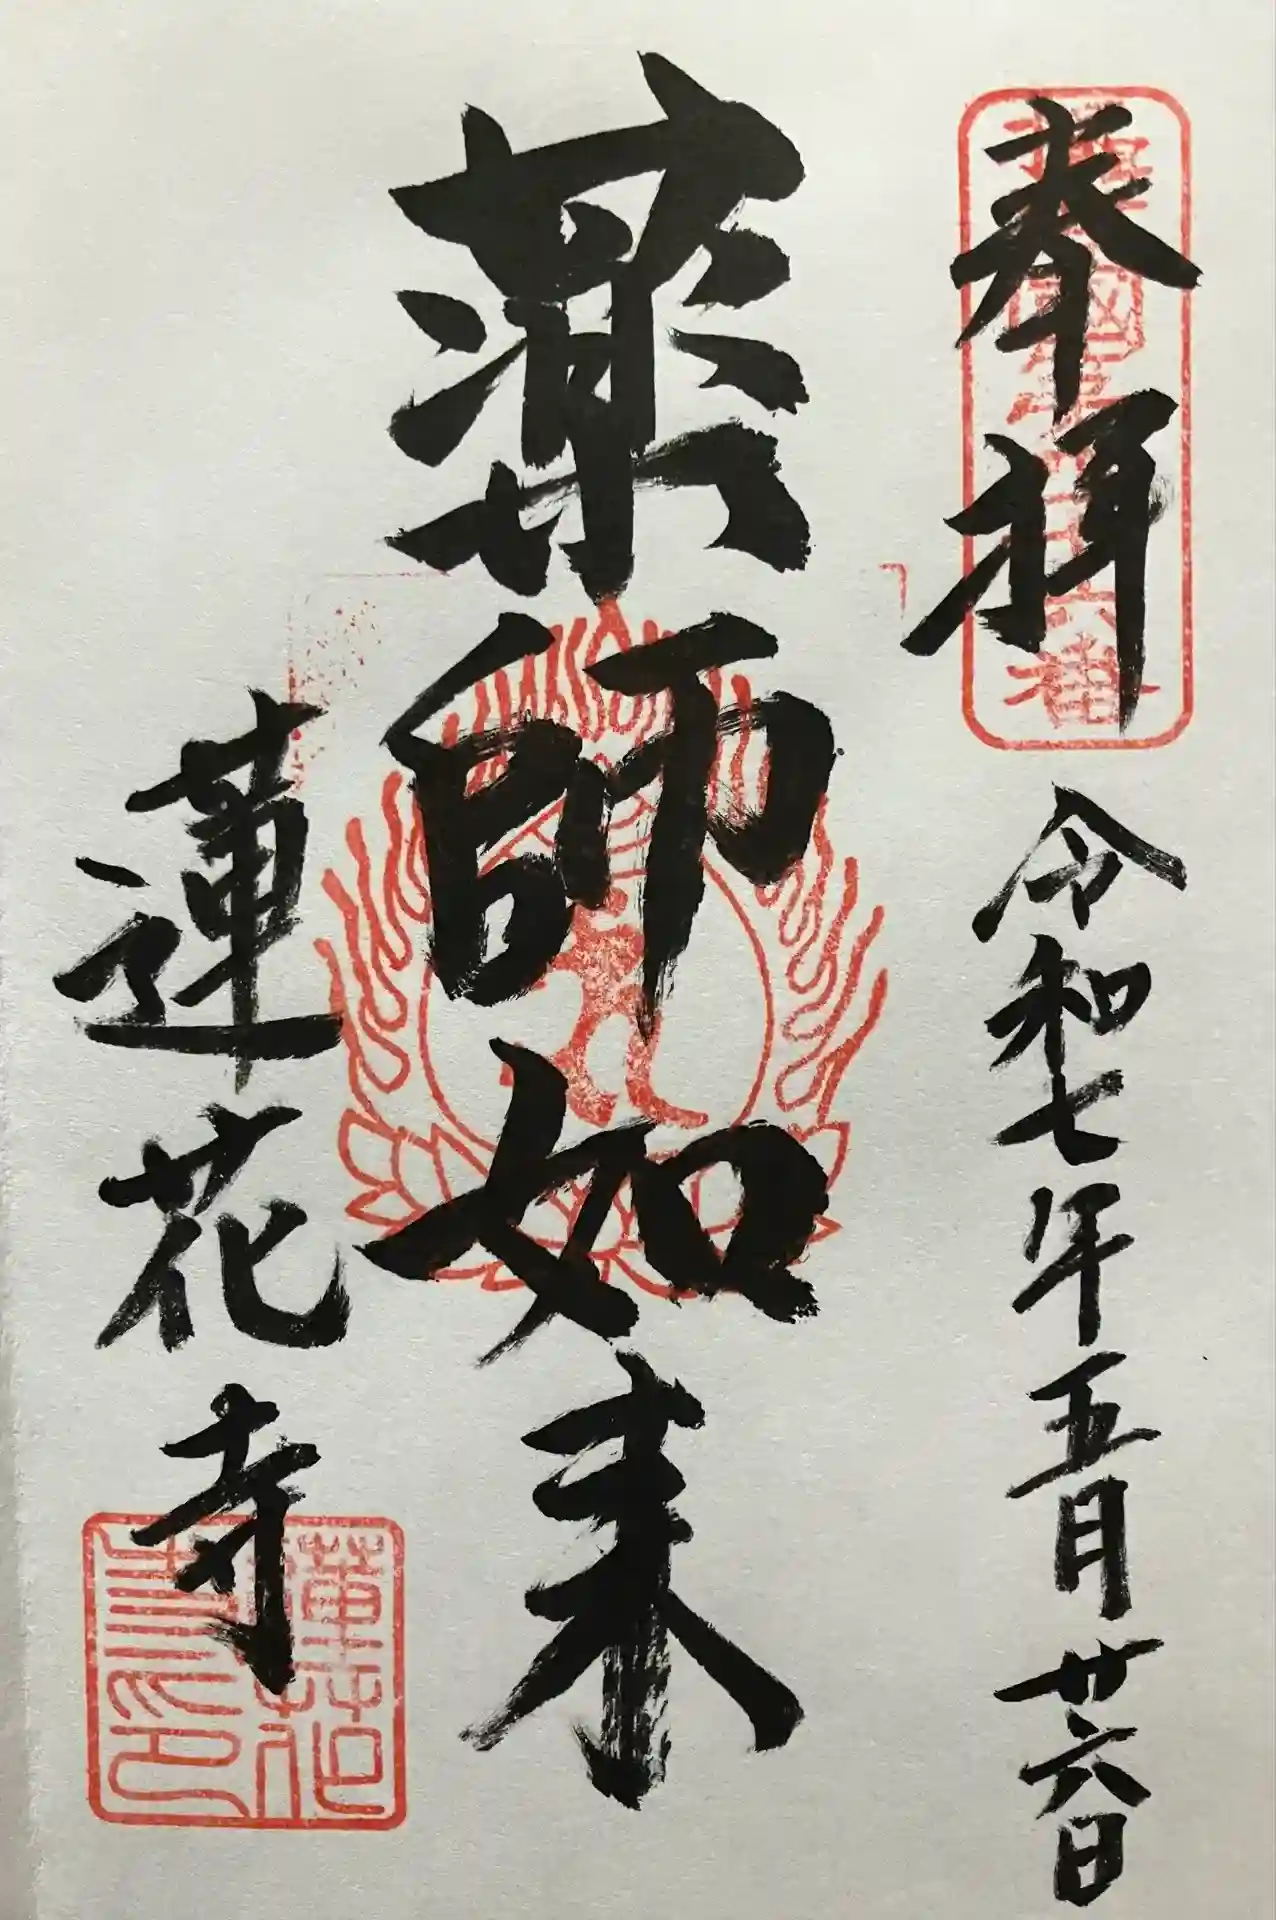 奉拝
令和七年五月廿六日
薬師如来
蓮花寺
蓮花
寺印